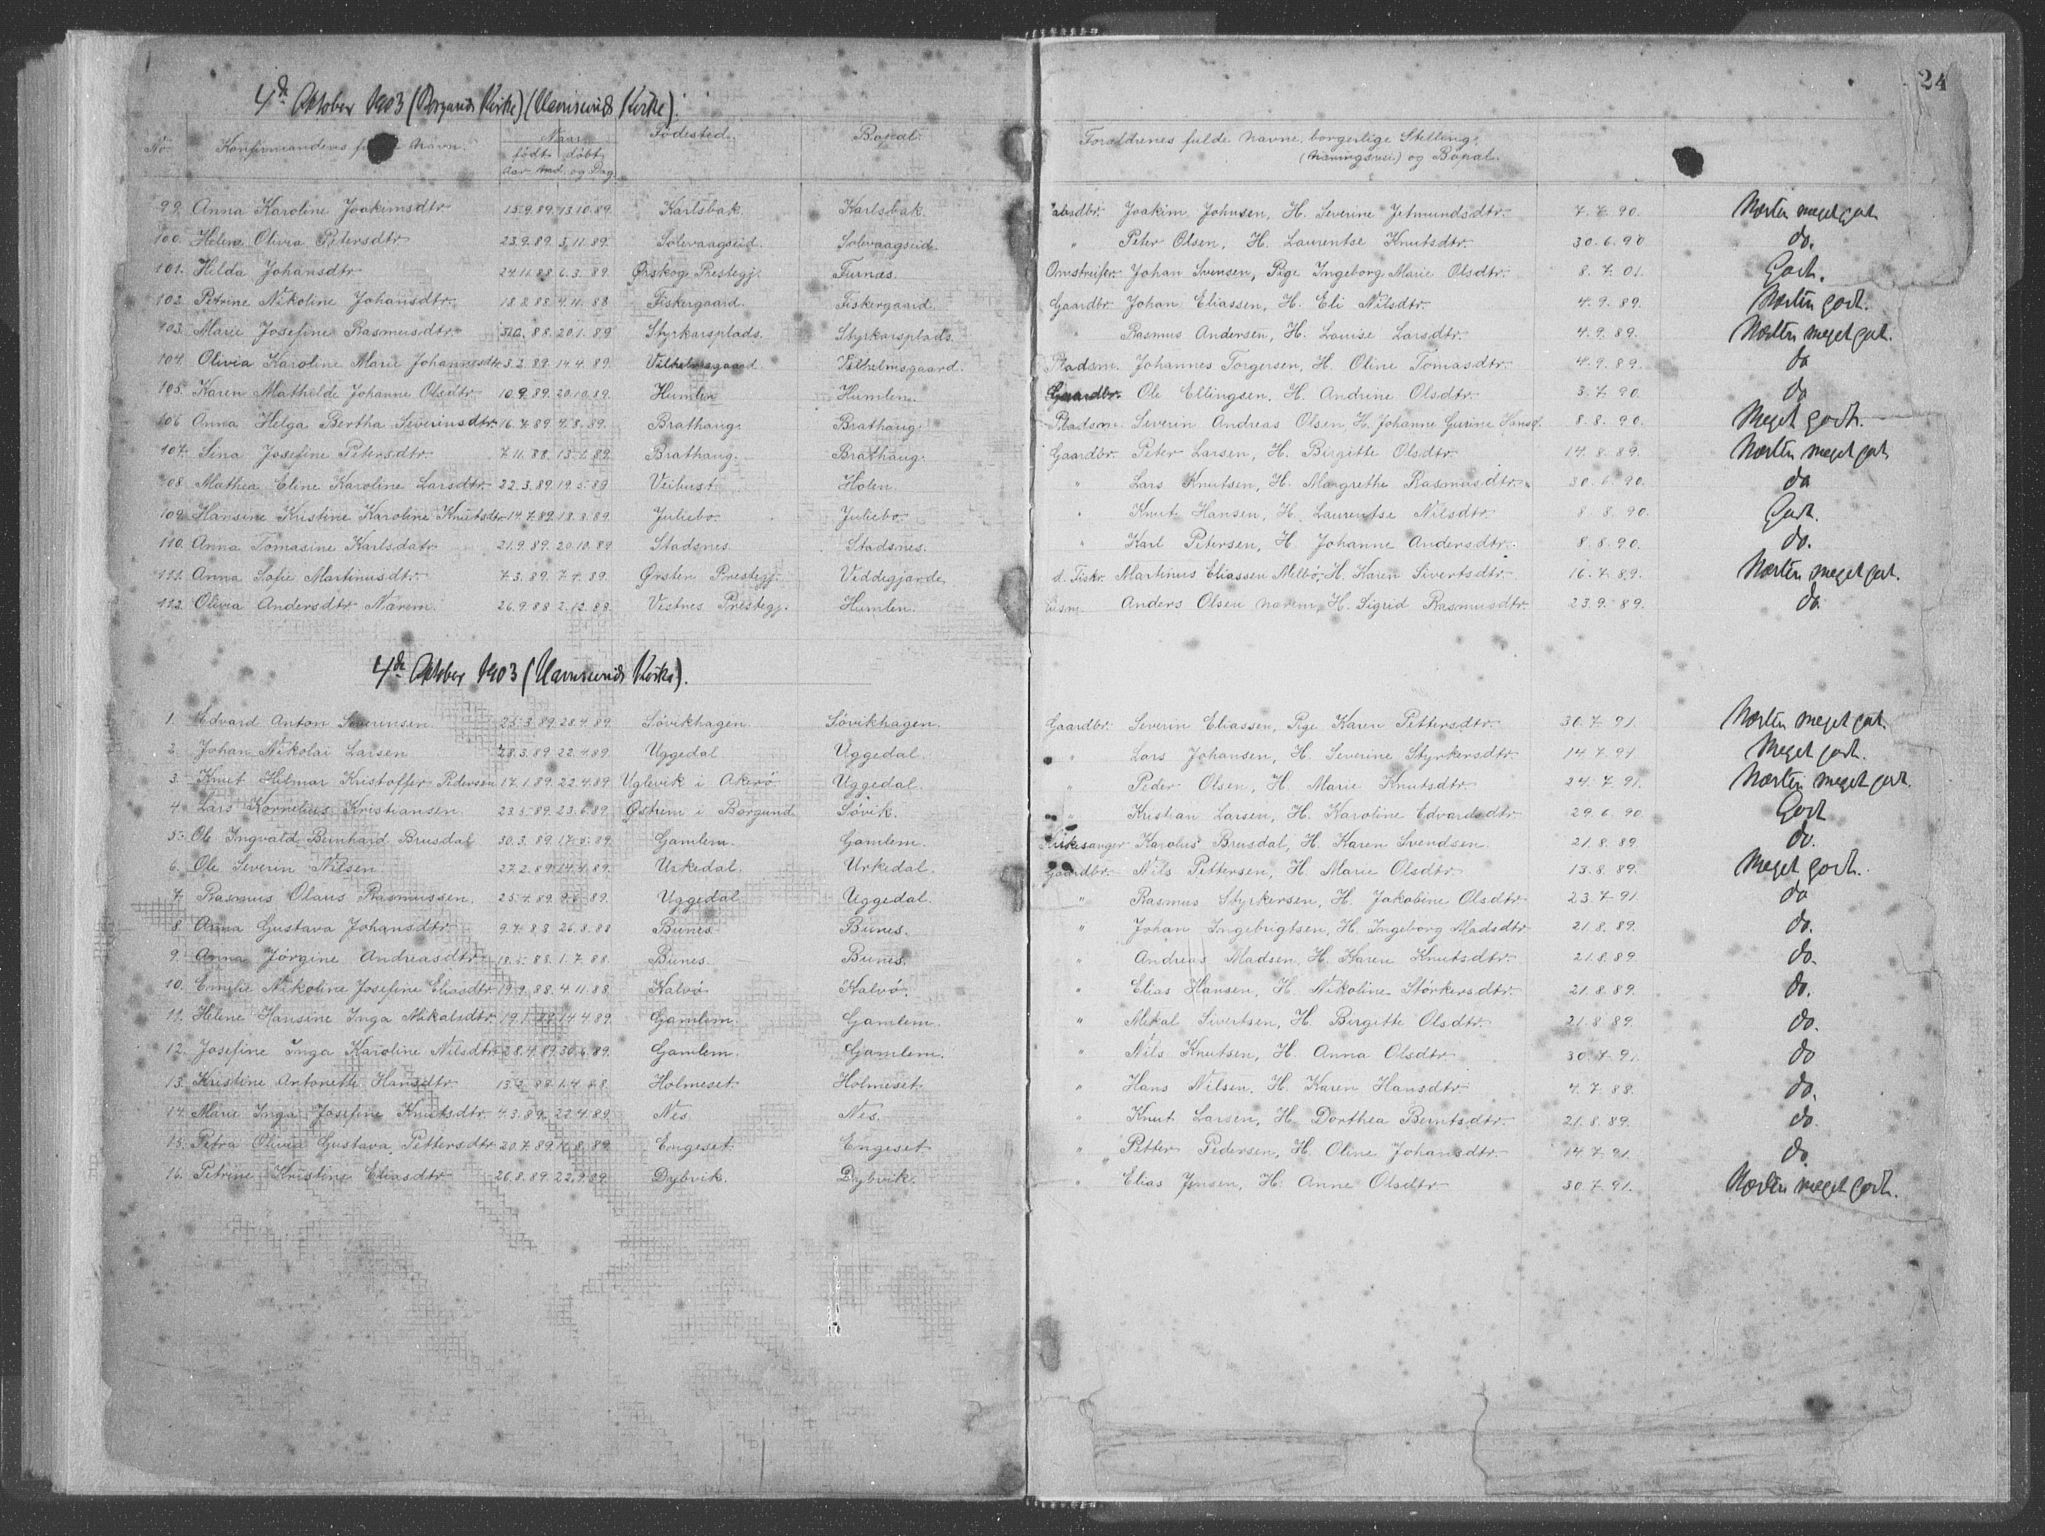 24
4de Oktober 1903 (Borgunds Kirke) (Hamsunds Kirke).
No. Konfirmandens fulde Navn. Naar Fødested. Bopæl. Forældrenes fulde Navne, borgerlige Stilling,
født døbt (Næringsvei) og Bopæl.
Aar Md. og Dag.
99. Anna Karoline Joakimsdtr 15.9.89. 13.10.89. Karlsbak. Karlsbak. Joakim Johnsen, H. Severine Jetmundsdtr. 7.7.90. Næsten meget godt
100. Helene Olivia Petersdtr 23.9.89. 3.11.89. Solevaagseid. Solevaagseid. " Peter Olsen, H. Laurentse Knutsdtr. 30.6.90 do.
101. Hilda Johansdtr 24.11.88. 6.3.89. Ørskog Prestegj. Furnes. Omstreifer. Johan Svensen, Pige Ingeborg Marie Olsdtr. 8.7.01. Godt.
102. Petrine Nikoline Johansdtr. 18.2.88. 4.11.88 Fiskergaard. Fiskergaard. Gaardbr. Johan Eliassen, H. Eli Nilsdtr. 4.9.89. Næsten godt.
103. Marie Josefine Rasmusdtr. 88. 20.1.89 Styrkarsplads. Styrkarsplads. " Rasmus Andersen, H. Louise Larsdtr. 4.9.89. Næsten meget godt.
104. Olivia Karoline Marie Johannesdtr 3.2.89. 14.4.89. Vilhelmsgaard. Vilhelmsgaard. Pladsm. Johannes Torgersen, H. Oline Tomasdtr. 4.9.89. do
105. Karen Mathilde Johanne Olsdtr. 10.9.89. 20.10.89. Humlen Humlen. Gaardbr. Ole Ellingsen, H. Andrine Olsdtr. 3.7.90. do
106 Anna Helga Bertha Severinsdtr. 16.7.89. 4.8.89. Brathaug. Brathaug. Pladsm. Severin Andreas Olsen, H. Johanne Gurine Hansd. 8.8.90. Meget godt.
107. Sina Josefine Petersdtr. 7.11.88. 13.1.89 Brathaug. Brathaug. Gaardbr. Peter Larsen, H. Birgitte Olsdtr. 14.8.89. Næsten meget godt
108. Mathea Eline Karoline Larsdtr. 22.3.89. 19.5.89 Veibust Holen. " Lars Knutsen, H. Margrethe Rasmusdtr. 30.6.90. do
109. Hansine Kristine Karoline Knutsdtr. 14.7.89. 18.8.89 Juliebø. Juliebø. " Knut Hansen, H. Laurentse Nilsdtr. 8.8.90. Godt.
110. Anna Tomasine Karlsdatr 21.9.89. 20.10.89 Stadsnes. Stadsnes. " Karl Petersen, H. Johanne Andersdtr. 8.8.90. do.
111. Anna Sofie Martinusdtr. 7.3.89. 7.4.89. Ørsten Prestegj. Viddegjærde Martinus Eliassen Melbø, H. Karen Sivertsdtr. 16.7.89. Næsten meget godt.
112. Olivia Andersdtr Nærem. 26.9.88 2.12.88. Vestnes Prestegj. Humlen. Anders Olsen Nærem, H. Sigrid Rasmusdtr. 23.9.89. do.
4de Oktober 1903 (Hamsunds Kirke).
1. Edvard Anton Severinsen 25.3.89. 28.4.89. Søvikhagen. Søvikhagen. Gaardbr. Severin Eliassen, Pige Karen Pettersdtr. 30.7.91. Næsten meget godt.
2. Johan Nikolai Larsen 28.3.89 22.4.89 Uggedal Uggedal. " Lars Johansen, H. Severine Styrkersdtr. 14.7.91 Meget godt.
3. Knut Hilmar Kristoffer Pedersen 17.1.89. 22.4.89 Uglevik i Akerø Uggedal. " Peder Olsen, H. Marie Knutsdtr 24.7.91. Næsten meget godt.
4. Lars Kornelius Kristiansen 23.5.89. 23.6.89. Østrem i Borgund Søvik. " Kristian Larsen, H. Karoline Edvardsdtr. 29.6.90 Godt
5. Ole Ingvald Bernhard Brusdal 30.3.89. 17.5.89 Gamlem. Gamlem. Kirkesanger Karolus Brusdal, H. Karen Svendsen. 21.8.89. do.
6. Ole Severin Nilsen. 27.2.89. 14.4.89. Urkedal. Urkedal. Gaardbr. Nils Pettersen, H. Marie Olsdtr. 13.8.89. Meget godt.
7. Rasmus Olaus Rasmussen. 25.4.89. 89. Uggedal. Uggedal. " Rasmus Styrkersen, H. Jakobine Olsdtr. 23.7.91. do
8. Anna Gustava Johansdtr. 9.7.88 26.8.88 Bunes. Bunes. " Johan Ingebrigtsen, H. Ingeborg Madsdtr. 21.8.89. do.
9. Anna Jørgine Andreasdtr 18.5.88. 1.7.88. Bunes. Bunes. " Andreas Madsen, H. Karen Knutsdtr. 21.8.89. do.
10. Emilie Nikoline Josefine Eliasdtr. 19.9.88. 4.11.88 Kalvø. Kalvø. " Elias Hansen, H. Nikoline Størkersdtr. 21.8.89. do.
11. Helene Hansine Inga Mikalsdtr. 19.1.89. 14.4.89. Gamlem. Gamlem. " Mikal Sivertsen, H. Birgitte Olsdtr. 21.8.89. do.
12. Josefine Inga Karoline Nilsdtr. 28.4.89. 30.6.89. Gamlem. Gamlem. " Nils Knutsen, H. Anna Olsdtr. 30.7.91. do
13. Kristine Antonette Hansdtr 88. 1.4.88 Holmeset. Holmeset. " Hans Nilsen, H. Karen Hansdtr. 4.7.88. do.
14. Marie Inga Josefine Knutsdtr. 4.3.89. 22.4.89. Nes. Nes. " Knut Larsen, H. Dorthea Berntsdtr. 21.8.89. do.
15. Petra Olivia Gustava Pettersdtr. 20.7.89. 8.89. Engeset. Engeset. " Petter Pedersen, H. Oline Johansdtr. 14.7.91. do.
16. Petrine Kristine Eliasdtr. 26.8.89. 22.9.89. Dybvik. Dybvik. " Elias Jensen, H. Anne Olsdtr. 30.7.91. Næsten meget godt.